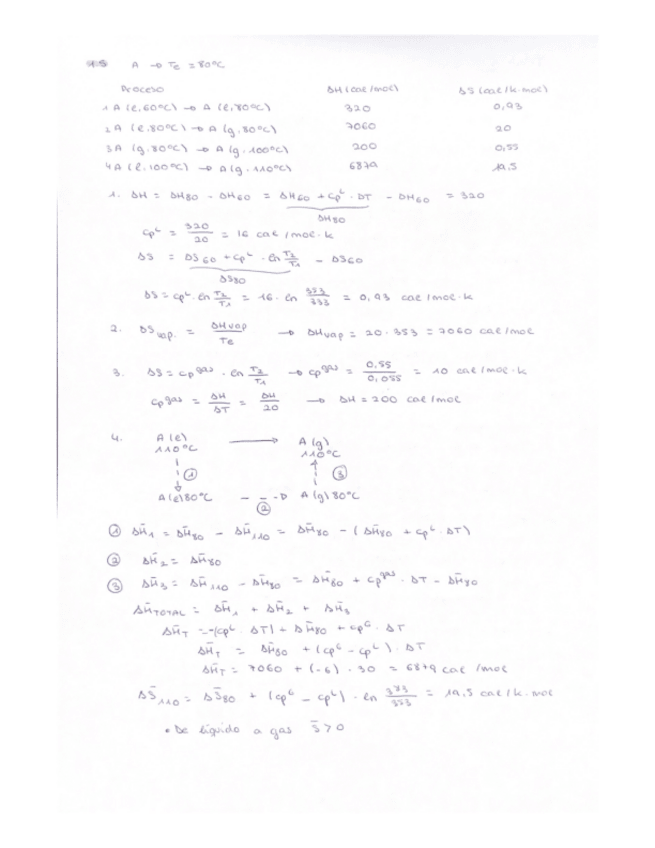 A → Te = 80ºC
Proceso ΔH (cal/mol) ΔS (cal/k·mol)
1 A (l, 60ºC) → A (l, 80ºC) 320 0,93
2 A (l, 80ºC) → A (g, 80ºC) 7060 20
3 A (g, 80ºC) → A (g, 100ºC) 200 0,55
4 A (l, 100ºC) → A (g, 110ºC) 6879 19,5
1. ΔH = ΔH80 - ΔH60 = ΔH60 + cpᴸ · ΔT - ΔH60 = 320
ΔH80
cpᴸ = 320/20 = 16 cal/mol·k
ΔS = ΔS60 + cpᴸ · ln T2/T1 - ΔS60
ΔS80
ΔS = cpᴸ · ln T2/T1 = 16 · ln 353/333 = 0,93 cal/mol·k
2. ΔSvap. = ΔHvap/Te → ΔHvap = 20 · 353 = 7060 cal/mol
3. ΔS = cp gas · ln T2/T1 → cp gas = 0,55/0,055 = 10 cal/mol·k
cp gas = ΔH/ΔT = ΔH/20 → ΔH = 200 cal/mol
4. A (l) → A (g)
110ºC 110ºC
① ③
A (l) 80ºC → A (g) 80ºC
②
① ΔH̄1 = ΔH̄80 - ΔH̄110 = ΔH̄80 - (ΔH̄80 + cpᴸ · ΔT)
② ΔH̄2 = ΔH̄80
③ ΔH̄3 = ΔH̄110 - ΔH̄80 = ΔH̄80 + cp gas · ΔT - ΔH̄80
ΔH̄TOTAL = ΔH̄1 + ΔH̄2 + ΔH̄3
ΔH̄T = -(cpᴸ · ΔT) + ΔH̄80 + cpᴳ · ΔT
ΔH̄T = ΔH̄80 + (cpᴳ - cpᴸ) · ΔT
ΔH̄T = 7060 + (-6) · 30 = 6879 cal/mol
ΔS̄110 = ΔS̄80 + (cpᴳ - cpᴸ) · ln 383/353 = 19,5 cal/k·mol
• De líquido a gas S̄ > 0